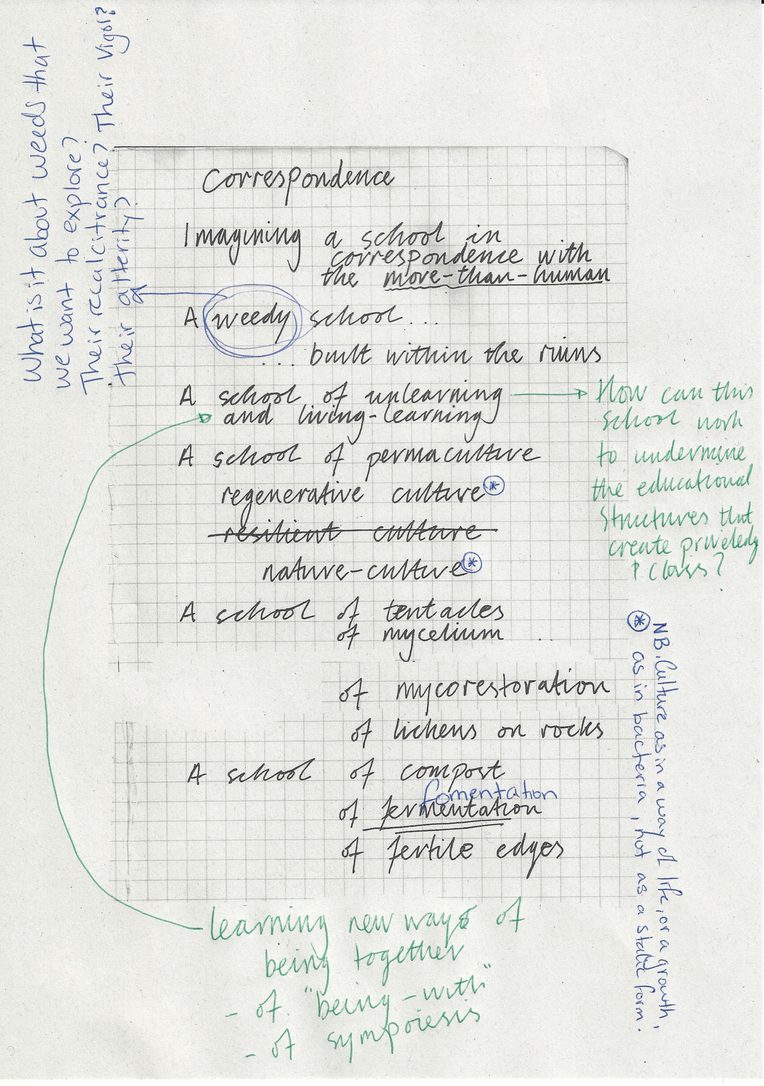 What is it about weeds that
we want to explore?
Their recalcitrance? Their Vigor?
Their alterity?
Correspondence
Imagining a school in
correspondence with
the more-than-human
A weedy school...
... built within the ruins
A school of unlearning
and living-learning
How can this
school work
to undermine
the educational
structures that
create priveledge
+ class?
A school of permaculture
regenerative culture *
resilient culture
nature-culture *
A school of tentacles
of mycelium ...
of mycorestoration
of lichens on rocks
A school of compost
fomentation
of fermentation
of fertile edges
* NB. Culture as in a way of life, or a growth,
as in bacteria, not as a static form.
learning new ways of
being together
- of "being-with"
- of sympoiesis